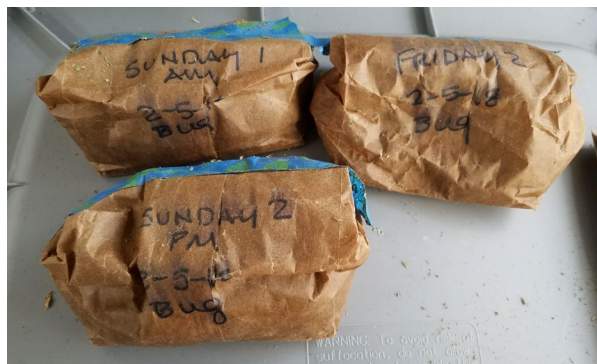 SUNDAY 1
AM
2-5-1
Bug
FRIDAY 2
2-5-18
Bug
SUNDAY 2
PM
2-5-18
Bug
WARNING: To avoid risk of
suffocation, do not